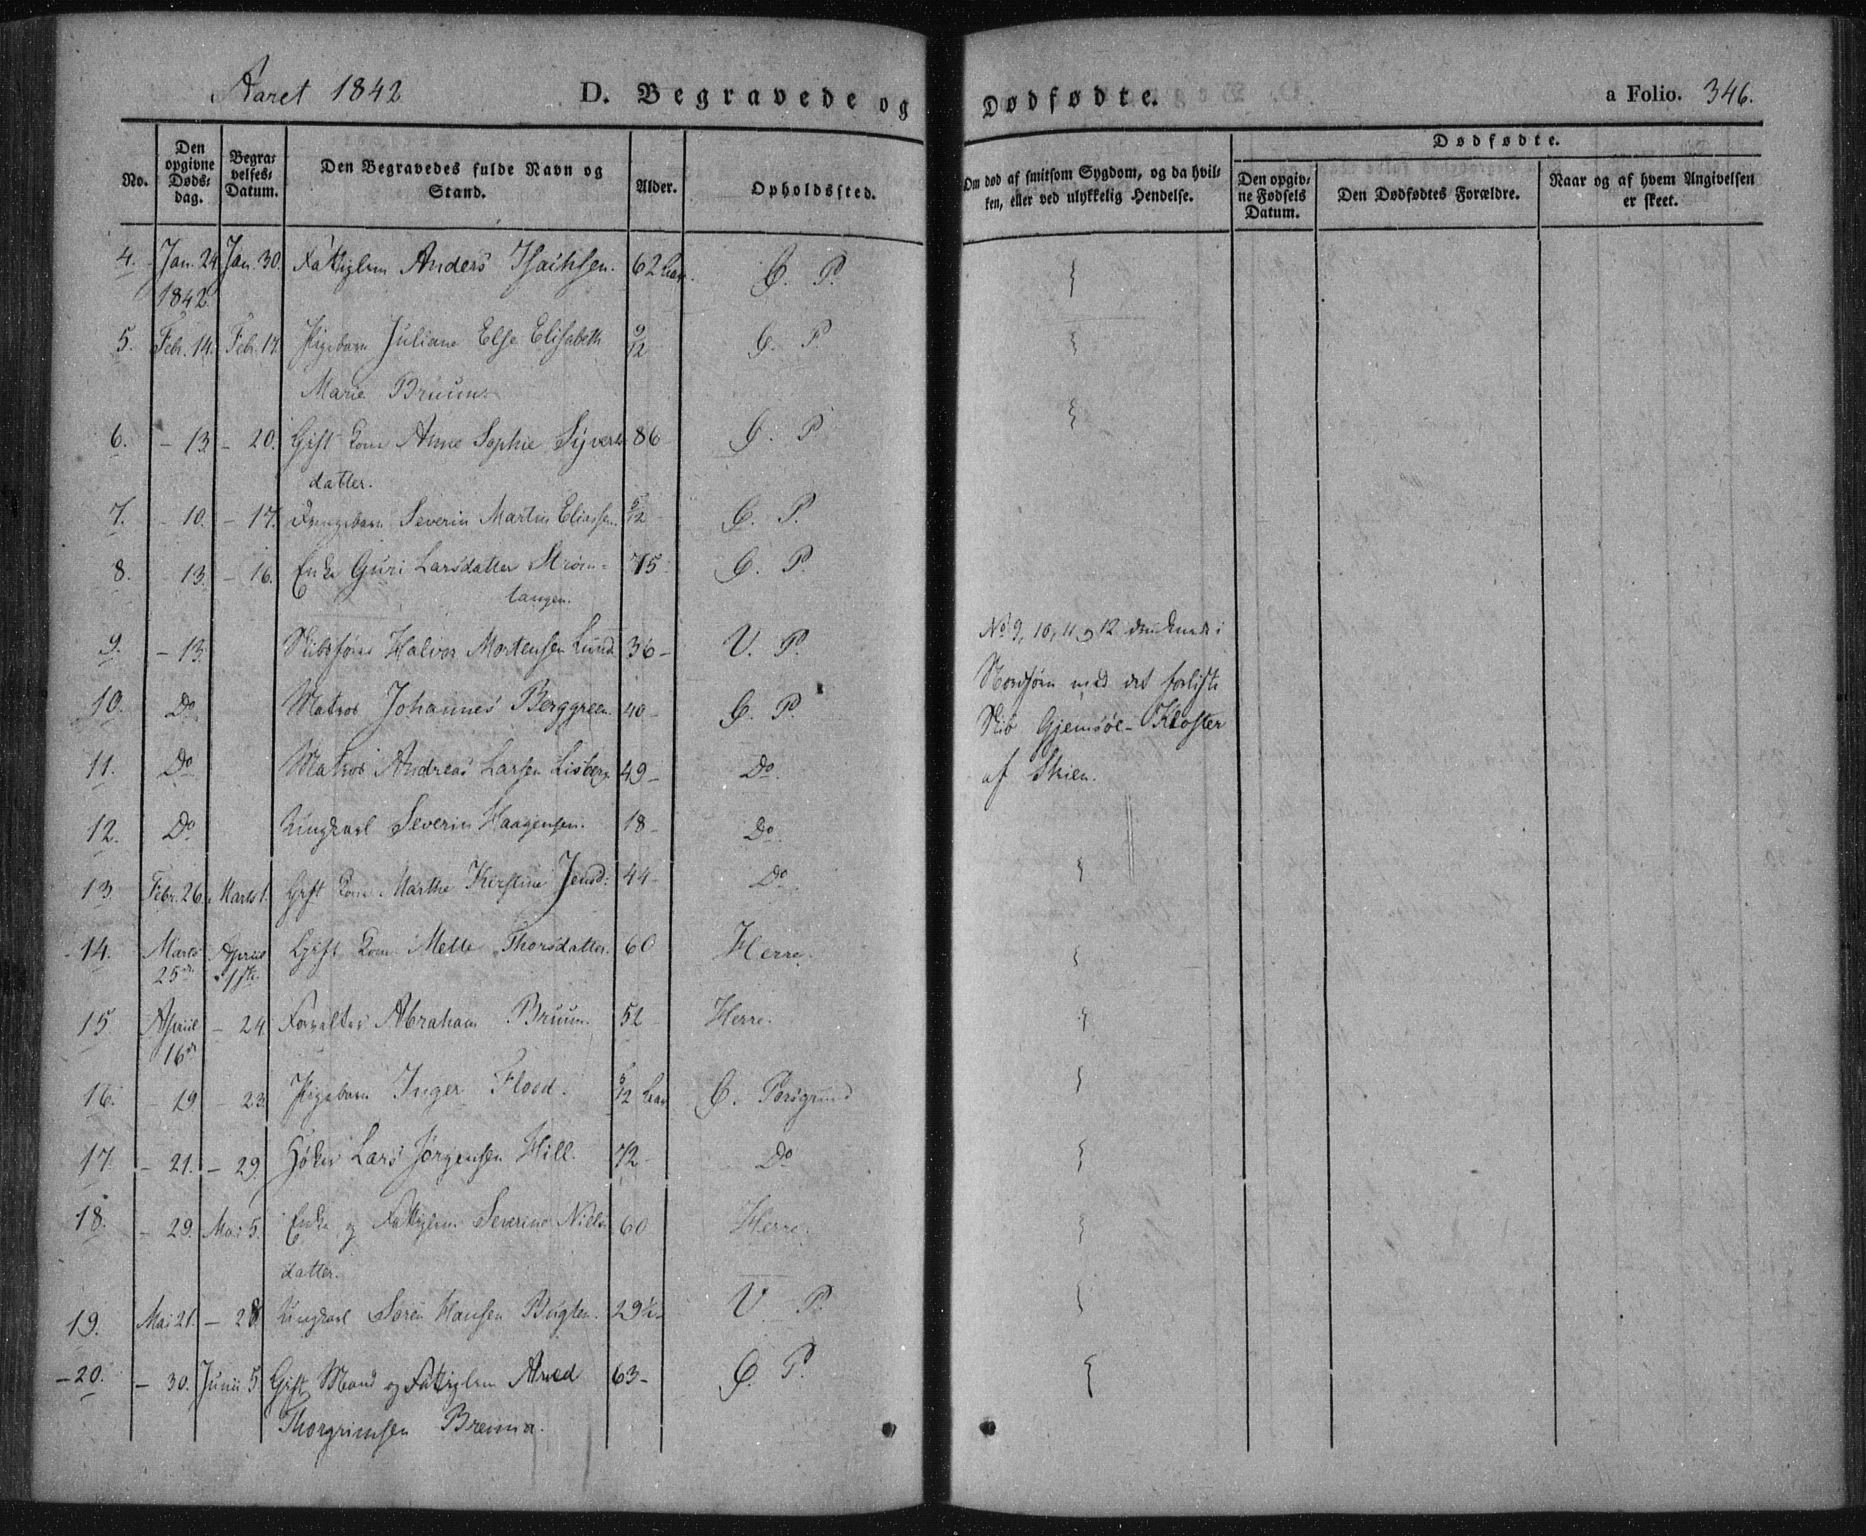 Aaret 1842
D. Begravede og Dødfødte.
a Folio. 346.
No.
Den opgivne Døds- dag.
Begra- velses- Datum.
Den Begravedes fulde Navn og Stand.
Alder.
Opholdssted.
Om død af smitsom Sygdom, og da hvil- ken, eller ved ulykkelig Hendelse.
Dødfødte.
Den opgiv- ne Fødsels Datum.
Den Dødfødtes Forældre.
Naar og af hvem Angivelsen er skeet.
4. Jan. 24 Jan. 30. Fattiglem Anders Isachsen. 62 Aar. Ø. P.
1842.
5. Febr. 14. Febr. 17. Pigebarn Juliane Else Elisabeth 9/12 Ø. P.
Marie Bruun
6. - 13. - 20. Gift Kone Anne Sophie Syverts 86 Ø. P.
datter.
7. - 10. - 17. Drengebarn Severin Martin Eliassen. /12 Ø. P.
8. - 13. - 16. Enke Guri Larsdatter Strøm- 75. Ø. P.
tangen.
9. - 13. Skibsfører Halvor Mortensen Lund 36 - V. P. No 9, 10, 11 og 12 druknede i
Nordsøen med det forliste
10. Do Matros Johannes Berggreen. 40 - Ø. P.
Skib Gjemsøe-Kloster
11. Do Matros Andreas Larsen Lisberg 49 - Do. af Skien.
12. Do Ungkarl Severin Haagensen. 18 - Do.
13. Febr. 26. Marts 1. Gift Kone Marthe Kirstine Jensd: 44 - Do
14. Marts April Gift Kone Mette Thorsdatter. 60 Herre.
25de 1ste
15 April - 24. Forvalter Abraham Bruun. 52 Herre.
16de
16. - 19 - 23. Pigebarn Inger Floed. /12 Aar Ø. Porsgrund
17. - 21. - 29. Høker Lars Jørgensen Hill. 72 - Do
18. - 29. Mai 5. Enke og Fattiglem Severine Niels 60 Herre.
datter.
19. Mai 21. - 28. Ungkarl Søren Hansen Bugten. 29½ - V. P.
- 20. - 30. Junii 5. Gift Mand og Fattiglem Arved 63 - Ø. P.
Thorgrimsen Brenna.